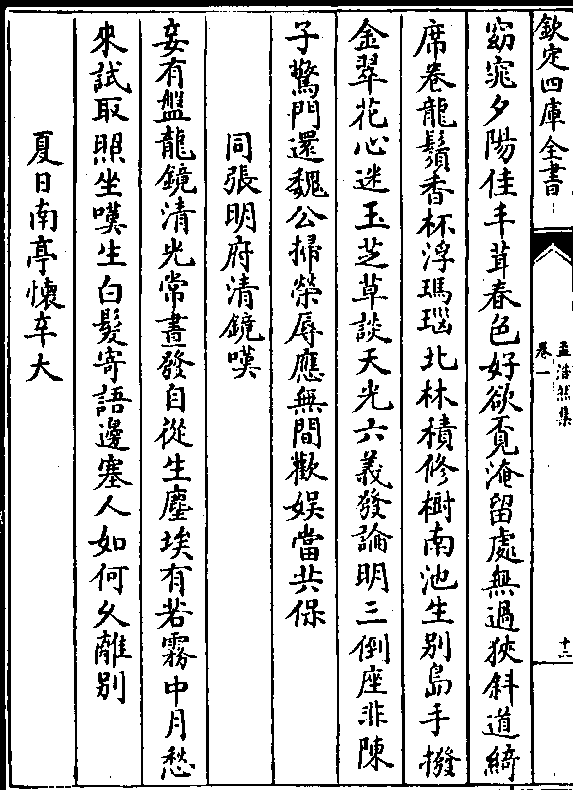 欽定四庫全書
孟浩然集
卷一
十二
窈窕夕陽佳丰茸春色好欲覓淹留處無過狹斜道綺
席卷龍鬚香杯浮瑪瑙北林積修樹南池生别島手撥
金翠花心迷玉芝草談天光六義發論明三倒座非陳
子驚門還魏公掃榮辱應無間歡娱當共保
同張明府清鏡嘆
妾有盤龍鏡清光常晝發自從生塵埃有若霧中月愁
來試取照坐嘆生白髮寄語邊塞人如何久離别
夏日南亭懷辛大